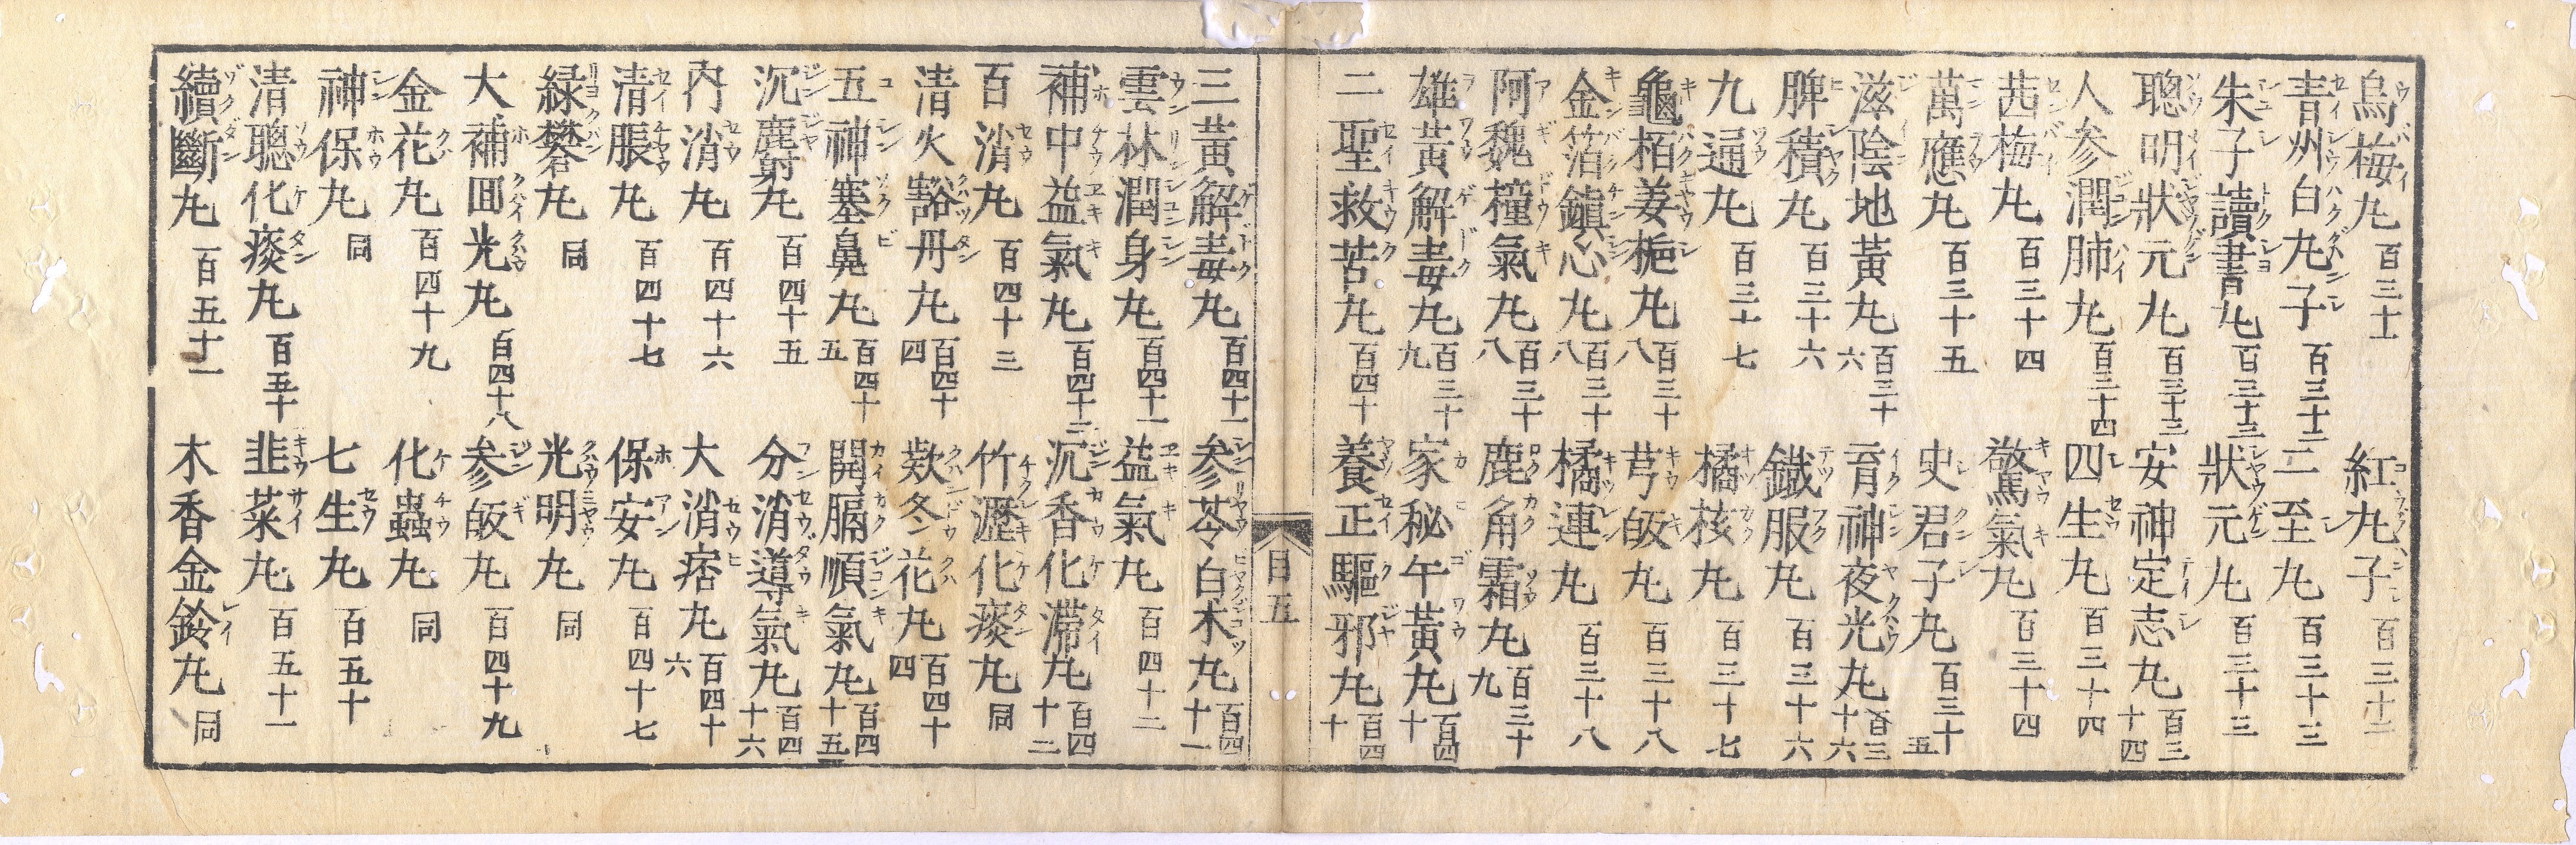 烏梅丸 百三十一 紅丸子 百三十二
青州白丸子 百三十二 二至丸 百三十三
朱子讀書丸 百三十三 狀元丸 百三十三
聰明狀元丸 百三十三 安神定志丸 百三十四
人参潤肺丸 百三十四 四生丸 百三十四
茜梅丸 百三十四 驚氣丸 百三十四
萬應丸 百三十五 史君子丸 百三十五
滋陰地黃丸 百三十六 育神夜光丸 百三十六
脾積丸 百三十六 鐵服丸 百三十六
九通丸 百三十七 橘核丸 百三十七
龜栢姜梔丸 百三十八 芎皈丸 百三十八
金箔鎮心丸 百三十八 橘連丸 百三十八
阿魏橦氣丸 百三十八 鹿角霜丸 百三十九
雄黃解毒丸 百三十九 家秘午黃丸 百四十
二聖救苦丸 百四十 養正驅邪丸 百四十
目五
三黃解毒丸 百四十一 參苓白朮丸 百四十一
雲林潤身丸 百四十一 益氣丸 百四十二
補中益氣丸 百四十二 沉香化滯丸 百四十二
百消丸 百四十三 竹瀝化痰丸 同
清火豁丹丸 百四十四 欵冬花丸 百四十四
五神塞鼻丸 百四十五 開膈順氣丸 百四十五
沉麝丸 百四十五 分消導氣丸 百四十六
內消丸 百四十六 大消痞丸 百四十六
清脹丸 百四十七 保安丸 百四十七
緑礬丸 同 光明丸 同
大補囬光丸 百四十八 參皈丸 百四十九
金花丸 百四十九 化蟲丸 同
神保丸 同 七生丸 百五十
清聰化痰丸 百五十 韭菜丸 百五十一
續斷丸 百五十一 木香金鈴丸 同